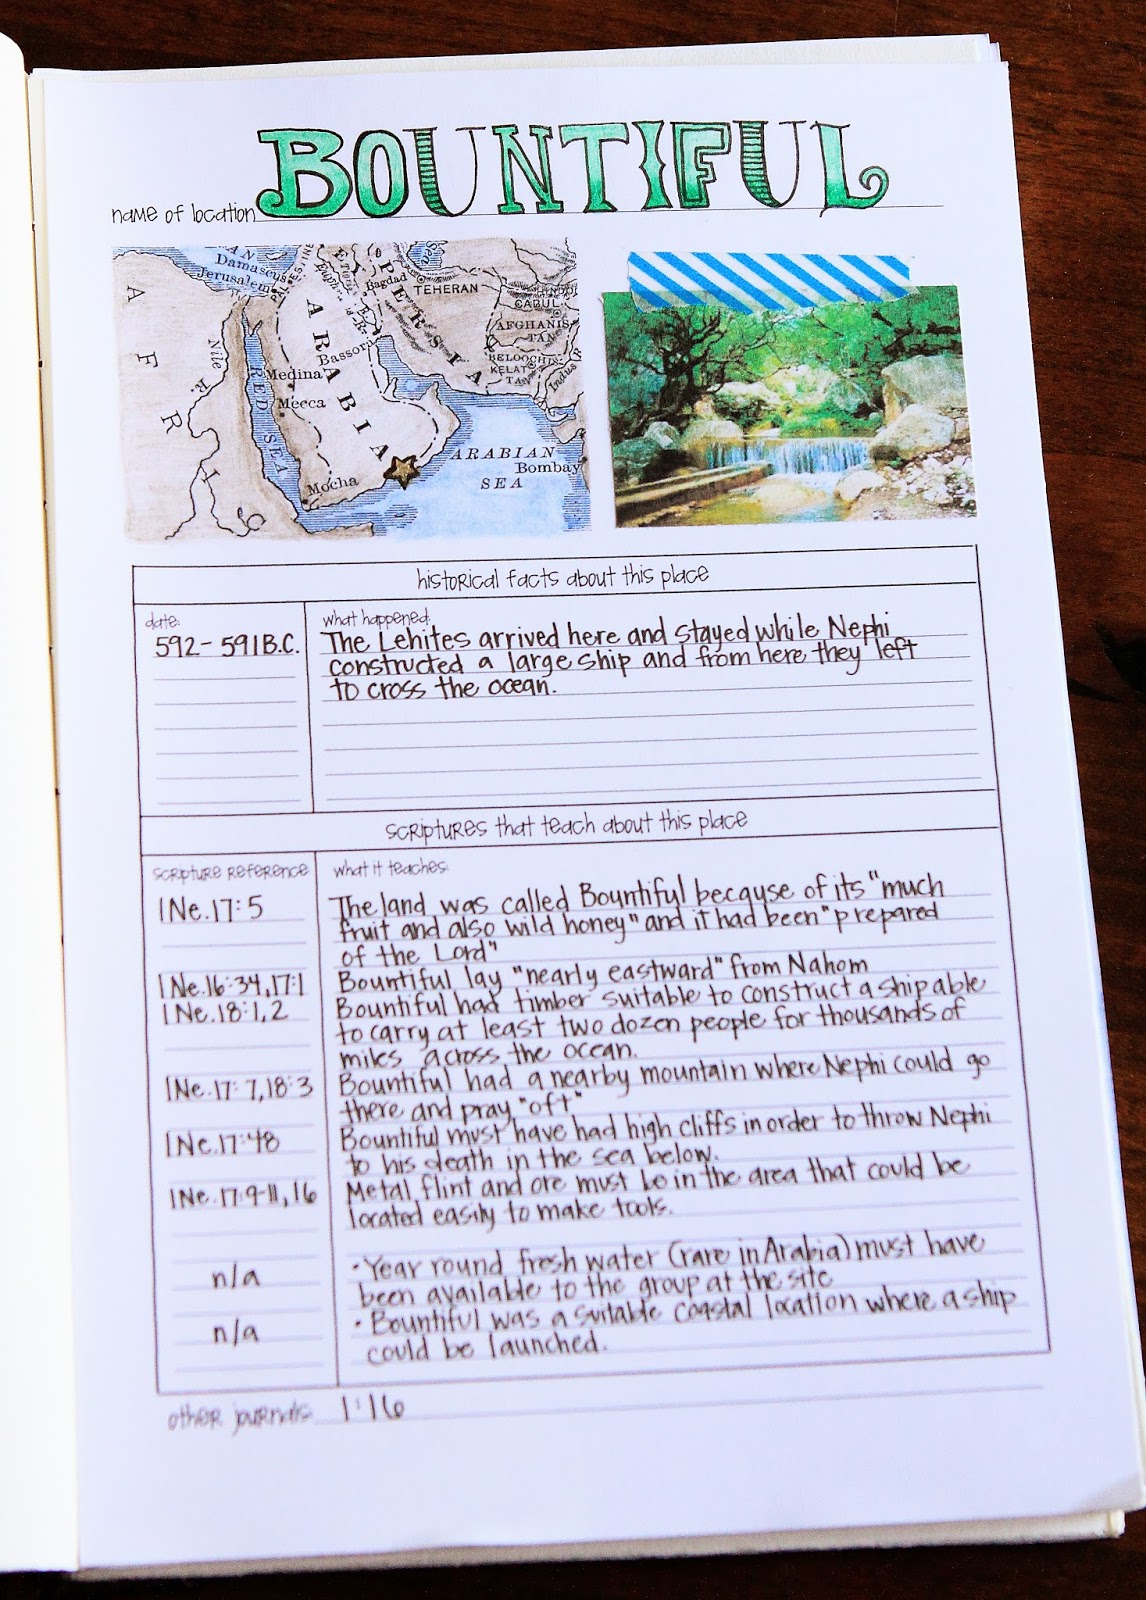 BOUNTIFUL
name of location
Damascus
Jerusalem
PALESTINE
Bagdad
TEHERAN
CABUL
AFGHANIS
TAN
BELOOCHI
KELAT
TAN
Indus
PERSIA
Bassora
ARABIA
Nile R.
AFRI
RED SEA
Medina
Mecca
Mocha
ARABIAN
SEA
Bombay
historical facts about this place
date:
what happened:
592-591 B.C.
The Lehites arrived here and stayed while Nephi
constructed a large ship and from here they left
to cross the ocean.
scriptures that teach about this place
scripture reference
what it teaches:
1 Ne. 17:5
The land was called Bountiful because of its "much
fruit and also wild honey" and it had been "prepared
of the Lord"
1 Ne. 16:34, 17:1
Bountiful lay "nearly eastward" from Nahom
1 Ne. 18:1,2
Bountiful had timber suitable to construct a ship able
to carry at least two dozen people for thousands of
miles across the ocean.
1 Ne. 17:7, 18:3
Bountiful had a nearby mountain where Nephi could go
there and pray "oft"
1 Ne. 17:48
Bountiful must have had high cliffs in order to throw Nephi
to his death in the sea below.
1 Ne. 17:9-11, 16
Metal, flint and ore must be in the area that could be
located easily to make tools.
n/a
• Year round fresh water (rare in Arabia) must have
been available to the group at the site
n/a
• Bountiful was a suitable coastal location where a ship
could be launched.
other journals: 1:16